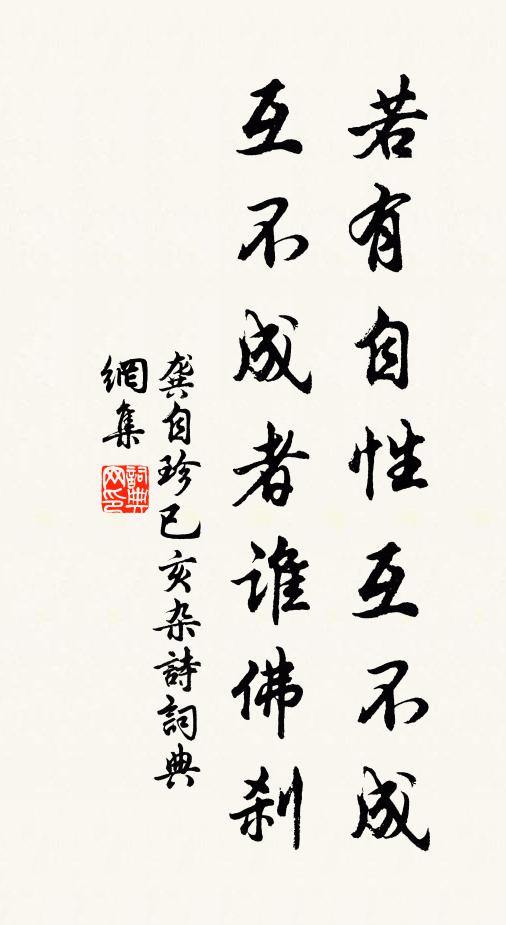 若有自性互不成
互不成者誰佛刹
龚自珍已亥杂詩詞典
網集
詞典網印